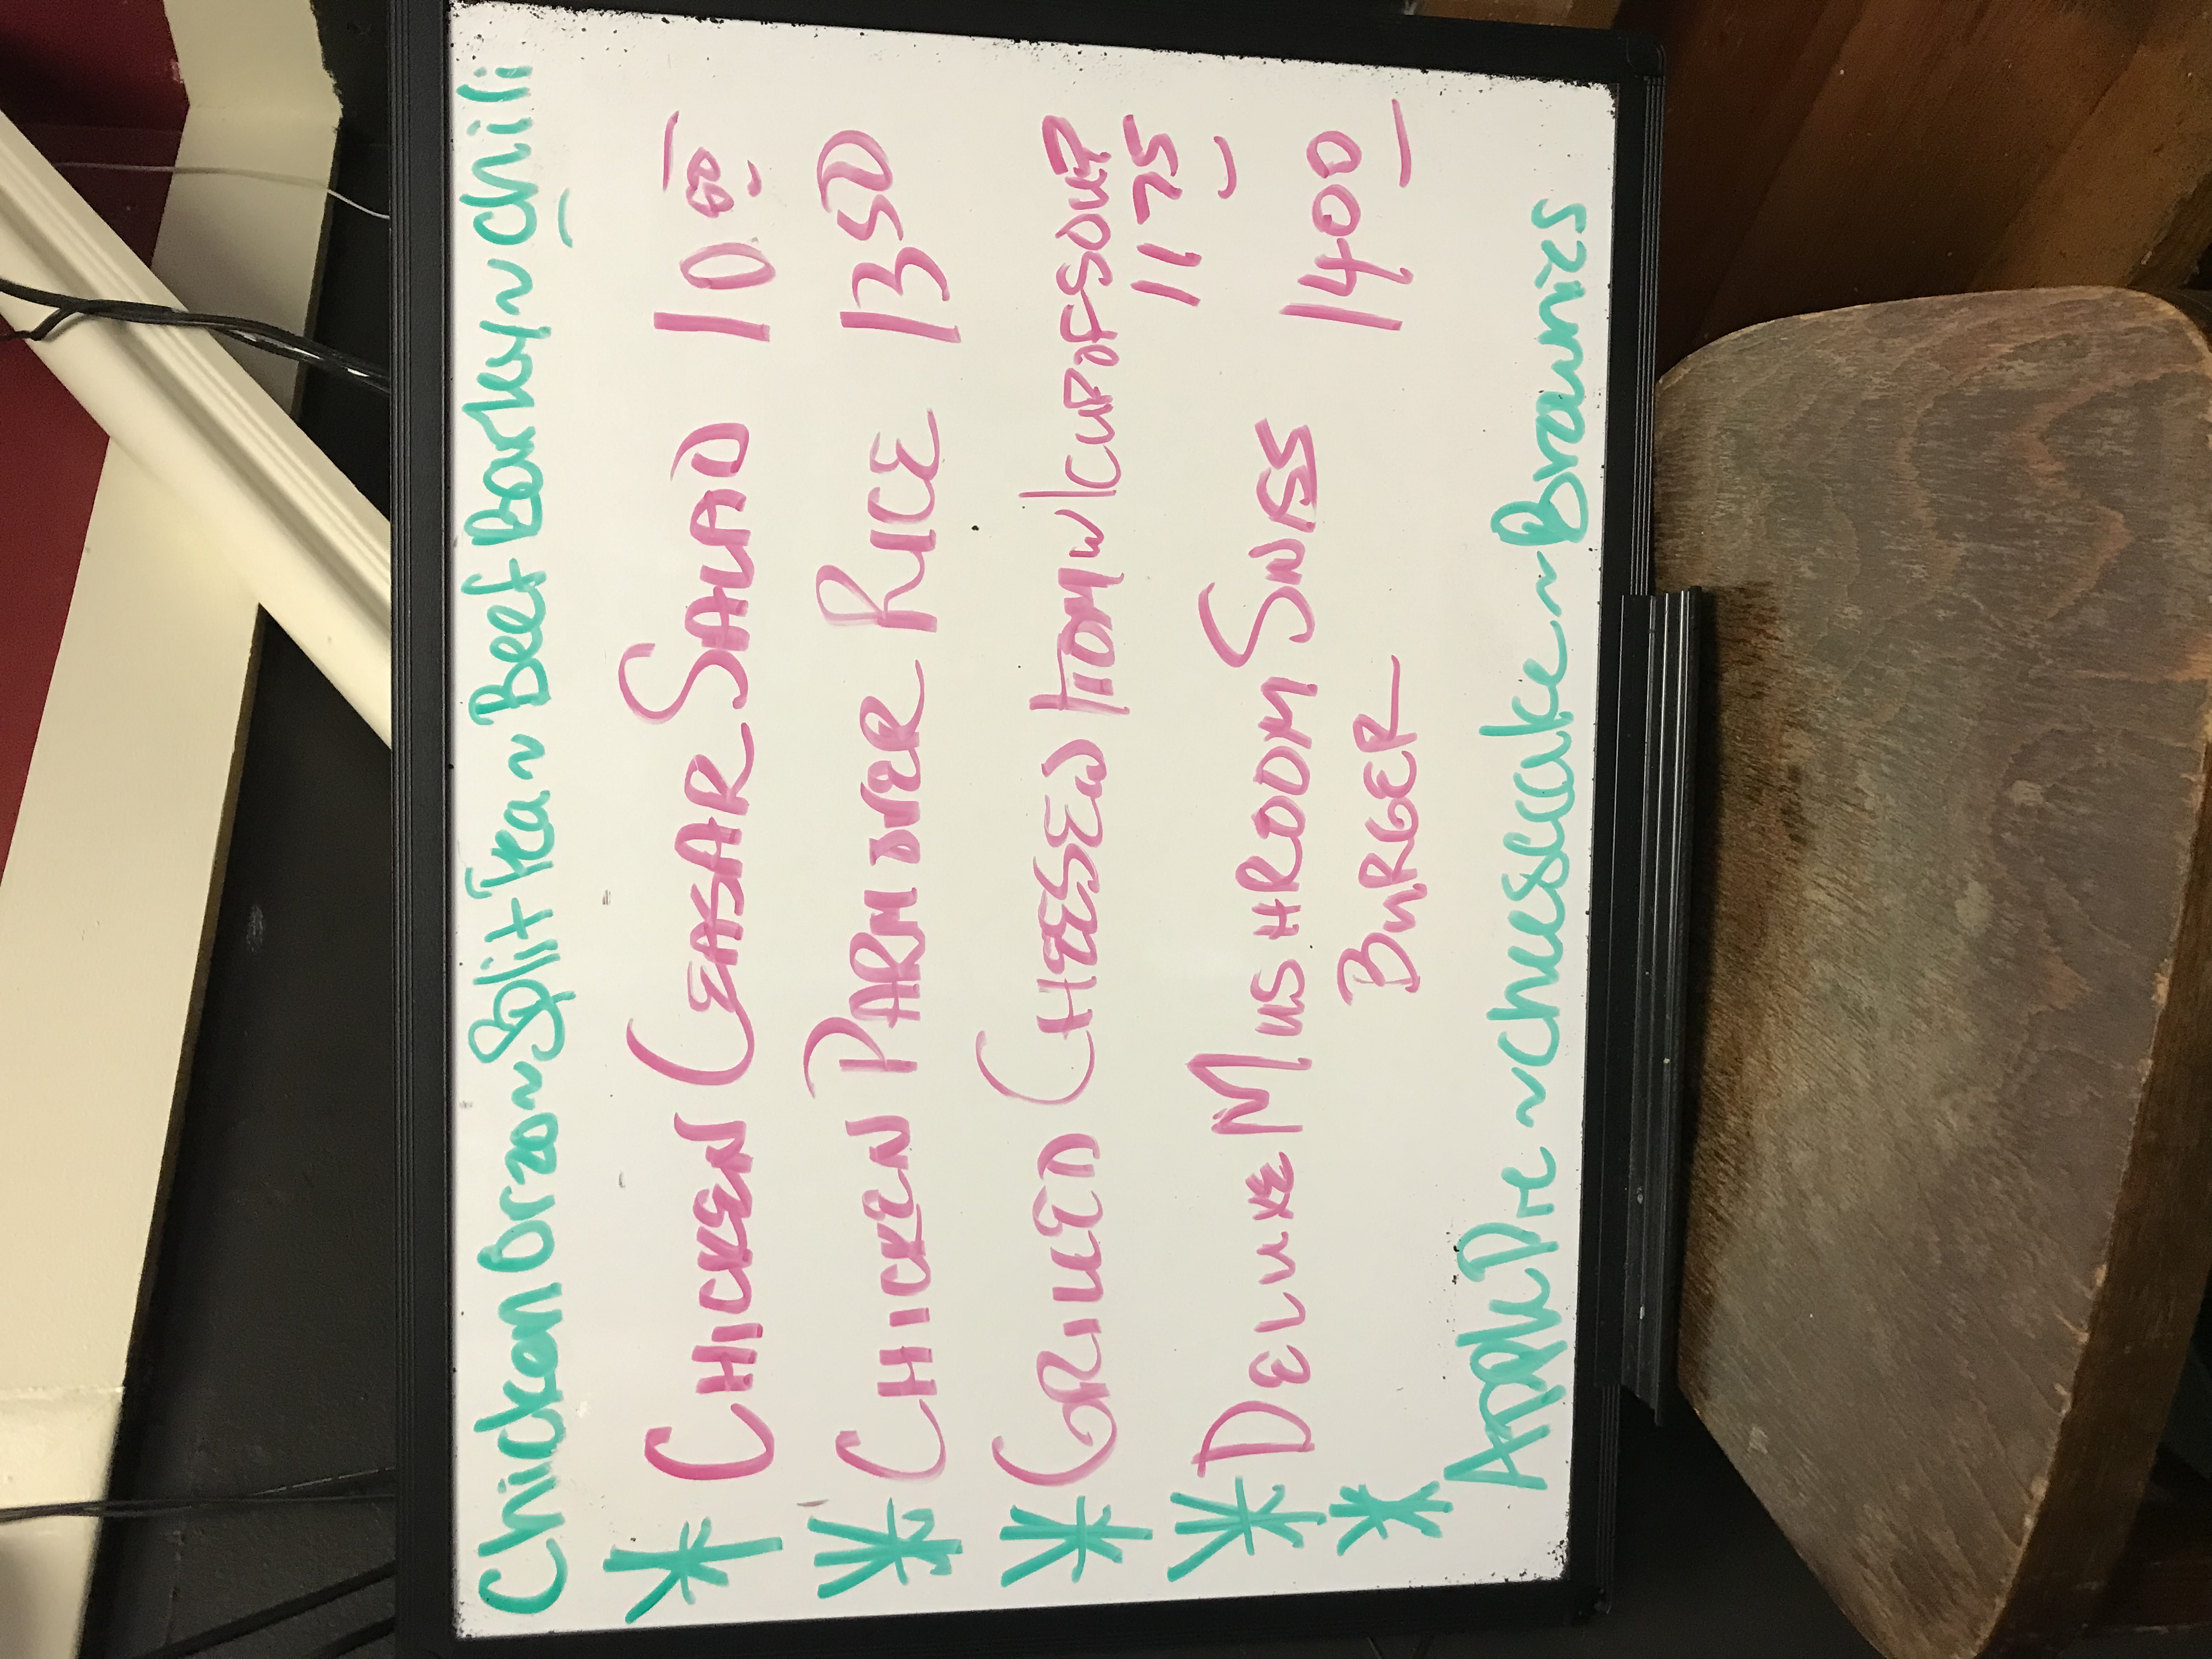 Chicken Orzo ~ Split Pea ~ Beef Barley ~ Chili
* CHICKEN CEASAR SALAD 10.00
* CHICKEN PARM OVER RICE 13 50
* GRILLED CHEESE W/TOM W/CUP OF SOUP
11 75
* DELUXE MUSHROOM SWISS 14 00
* BURGER
Apple Pie ~ Cheesecake ~ Brownies